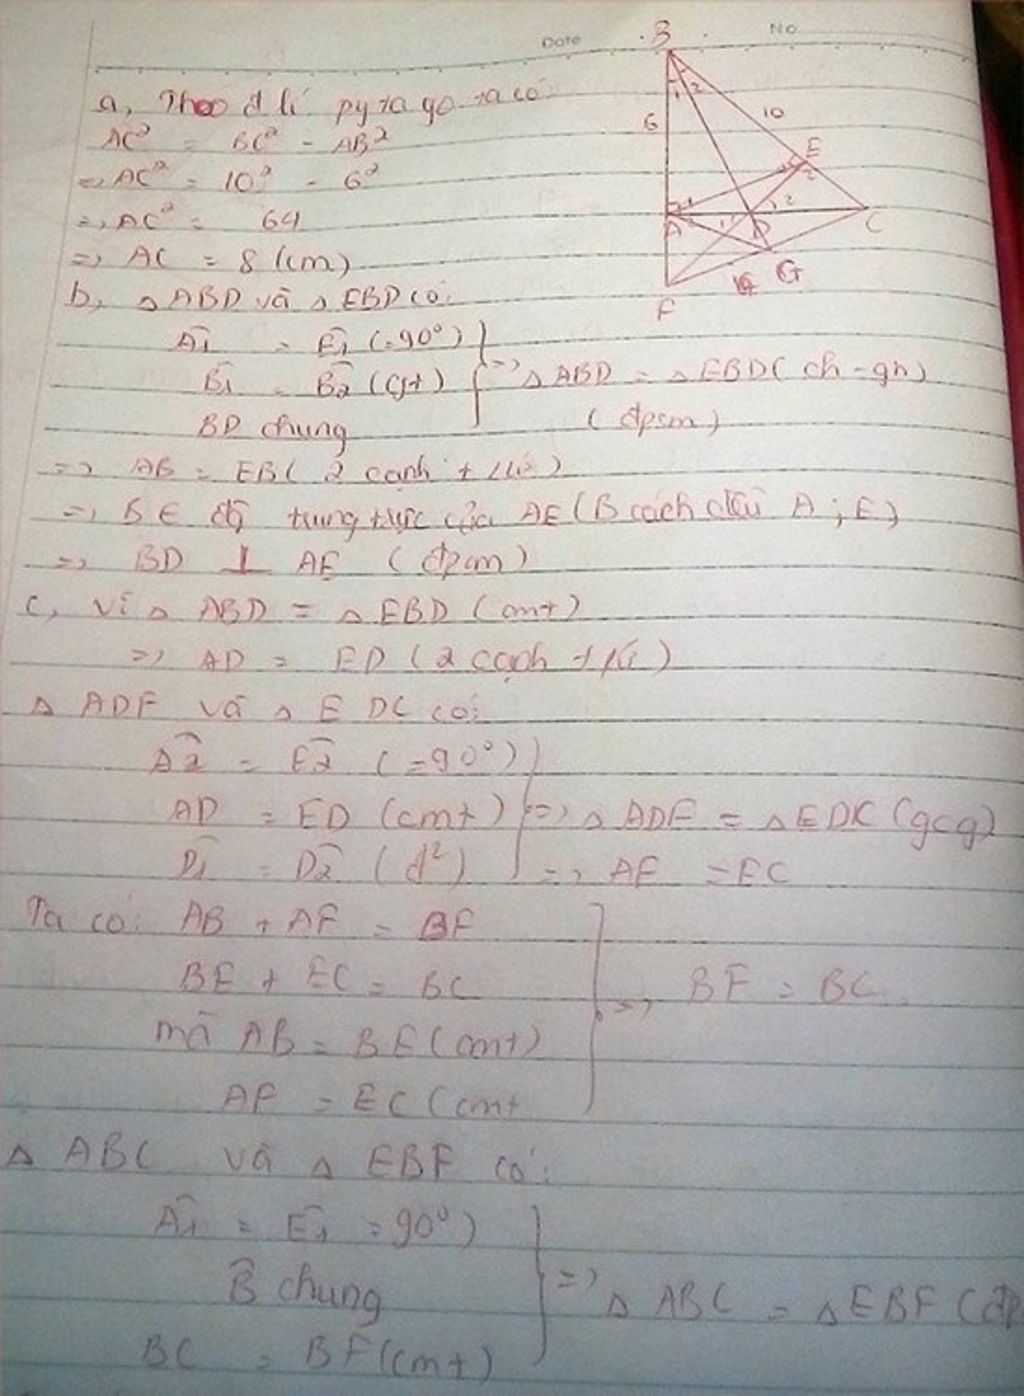 Date No
B
1 2
6
10
E
1 2
A 1 2
1 D 2
C
G
F
a, Theo đ lí pytago ta có:
AC² = BC² - AB²
=> AC² = 10² - 6²
=> AC² = 64
=> AC = 8 (cm)
b, △ABD và △EBD có:
Â1 = Ê1 (=90°)
B̂1 = B̂2 (gt) => △ABD = △EBD (ch - gn)
BD chung (đpcm)
=> AB = EB (2 cạnh t/ứ)
=> B ∈ đg trung trực của AE (B cách đều A; E)
=> BD ⊥ AE (đpcm)
c, Vì △ABD = △EBD (cmt)
=> AD = ED (2 cạnh t/ứ)
△ADF và △EDC có:
Â2 = Ê2 (=90°)
AD = ED (cmt) => △ADF = △EDC (gcg)
D̂1 = D̂2 (đ²) => AF = EC
Ta có: AB + AF = BF
BE + EC = BC => BF = BC
mà AB = BE (cmt)
AF = EC (cmt
△ABC và △EBF có:
Â1 = Ê1 = 90°)
B̂ chung => △ABC = △EBF (đp
BC = BF (cmt)